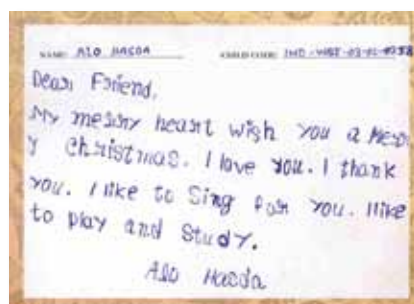 NAME: ALO HASDA CHILD CODE: IND-WBI-03-02-0258
Dear Friend,
My merry heart wish you a Merr
y Christmas. I love you. I thank
you. I like to Sing for you. I like
to play and study.
Alo Hasda